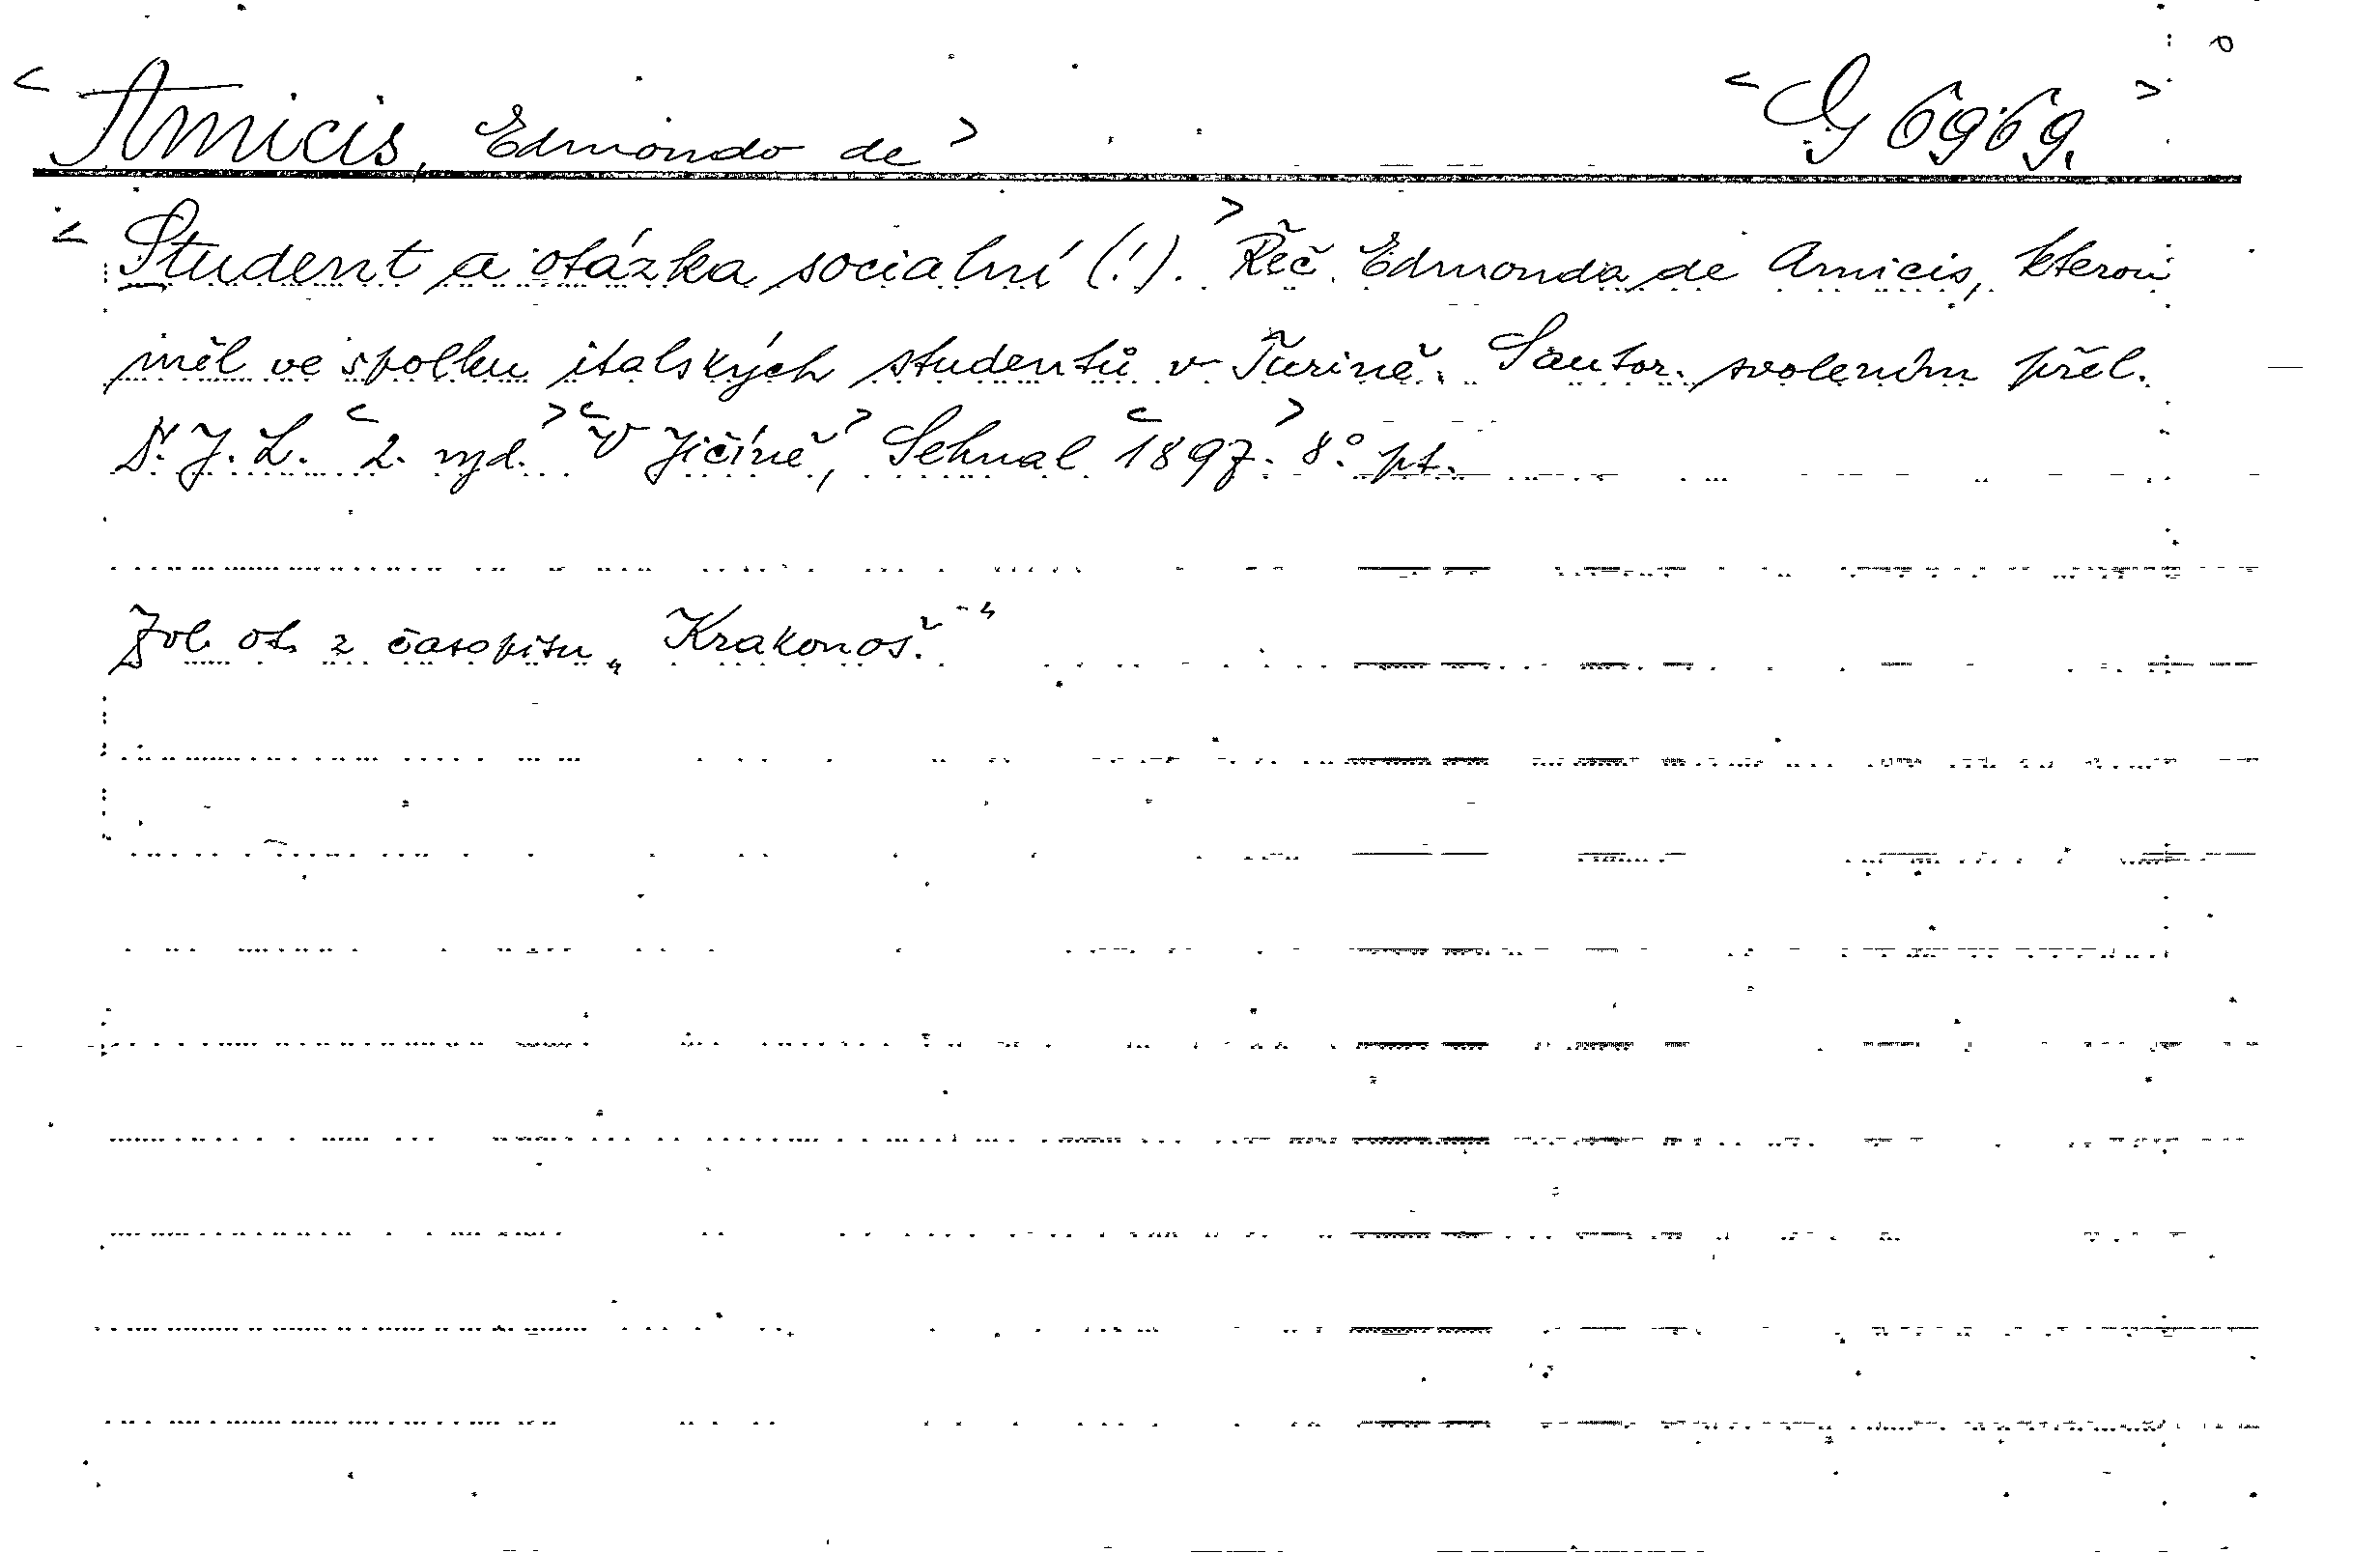 <Amicis, Edmondo de> <G 6969.>
<Student a otázka socialní (!).> Řeč Edmonda de Amicis, kterou
měl ve spolku italských studentů v Turině. S autor. svolením přel.
N. J. L. <2. vyd.> <V Jičíně,> Sehnal <1897.> 8° pt.
Zvl. ot. z časopisu „Krakonoš."